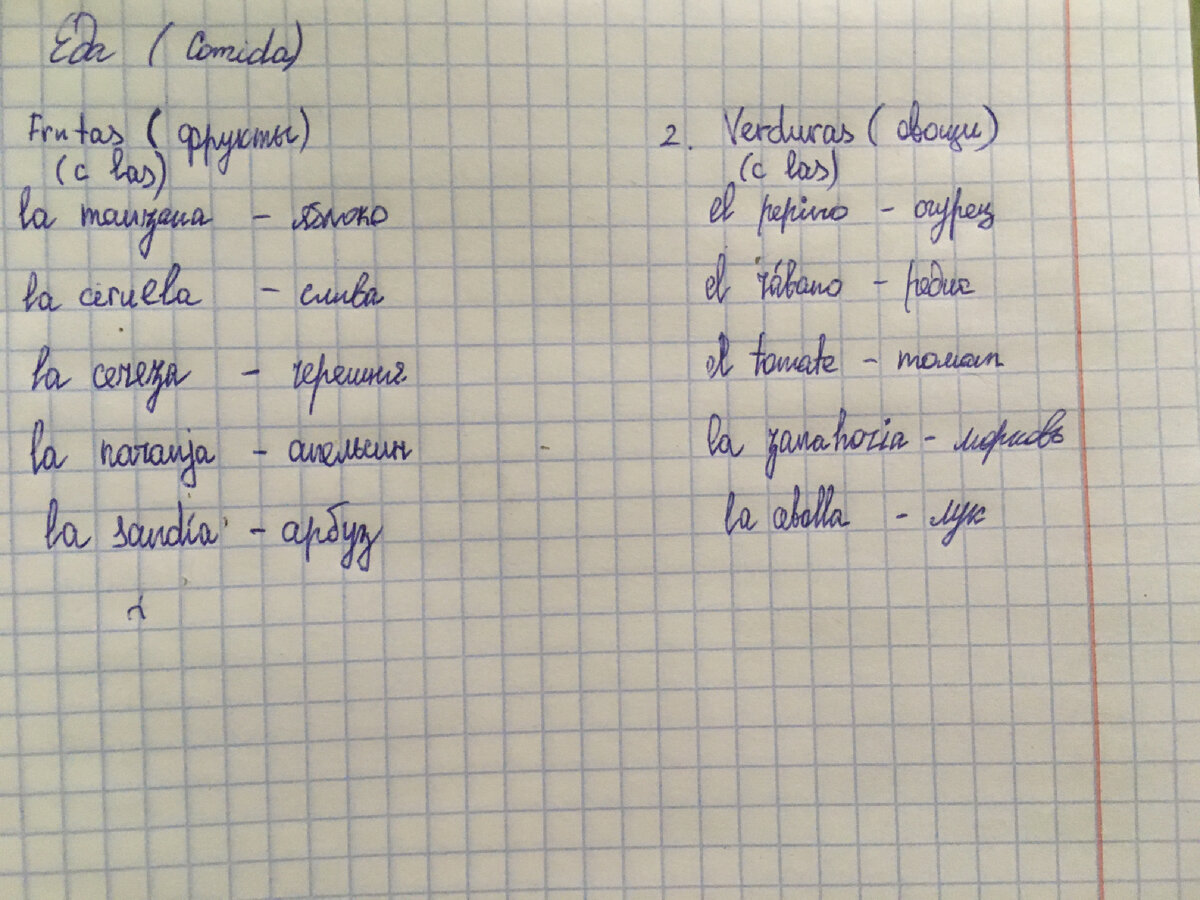 Еда (Comida)
Frutas (фрукты)
(c las)
la manzana - яблоко
la ciruela - слива
la cereza - черешня
la naranja - апельсин
la sandía - арбуз
2. Verduras (овощи)
(c las)
el pepino - огурец
el rábano - редис
el tomate - томат
la zanahoria - морковь
la cebolla - лук